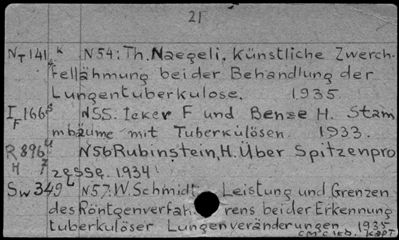 21
N T 141 k N54: Th. Naegeli. Künstliche Zwerch-
fellähmung bei der Behandlung der
Lungentuberkulose. 1935.
I F 166 s N55. Icker F und Bense H. Stam
mbäume mit Tuberkülösen. 1933.
R H 896 u N56 Rubinstein, H. Über Spitzenpro
zesse. 1934
Sw 349 L N57: W. Schmidt. Leistung und Grenzen
des Röntgenverfahrens bei der Erkennung
tuberkulöser Lungenveränderungen. 1935